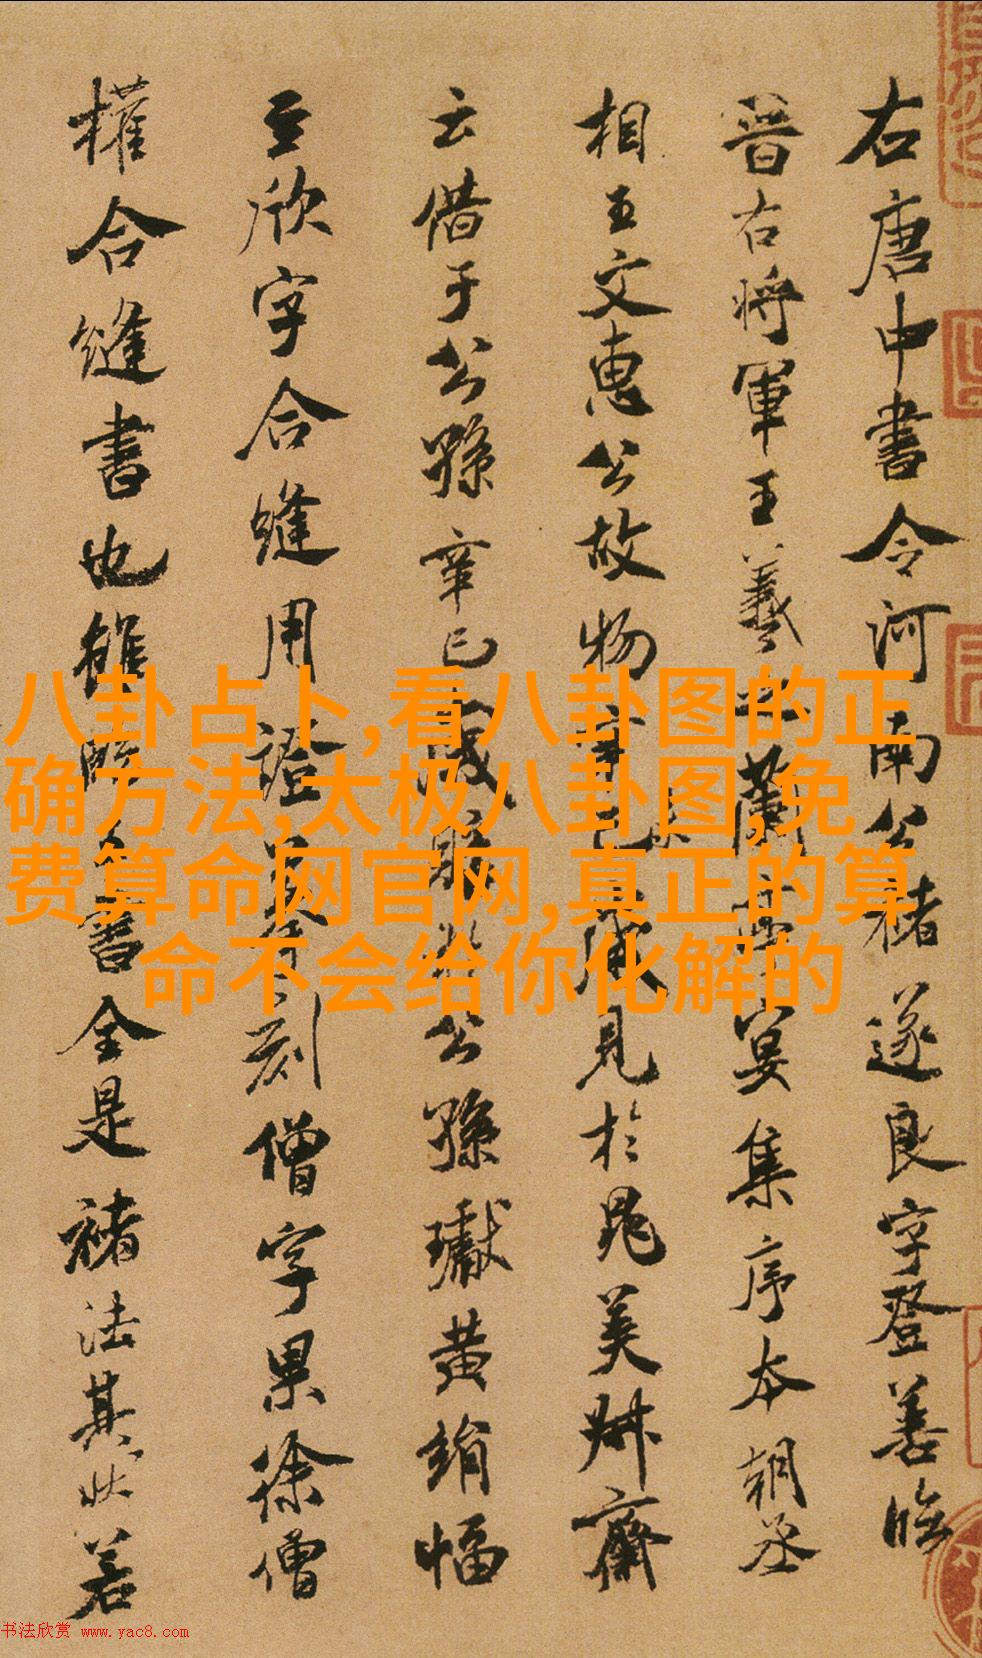 右唐中書令河南公褚遂良字登善臨
晉右將軍王羲之蘭亭宴集序本朝丞
相王文惠公故物辛巳歲見於晁美叔齋
云借于公孫辛巳歲購公孫瓛黃絹幅
至欣字合縫用證摹刻僧字果徐僧
權合縫書也雖臨王書全是褚法其狀若
八卦占卜,看八卦图的正
确方法,太极八卦图,免
费算命网官网,真正的算
命不会给你化解的
书法欣赏 www.yac8.com